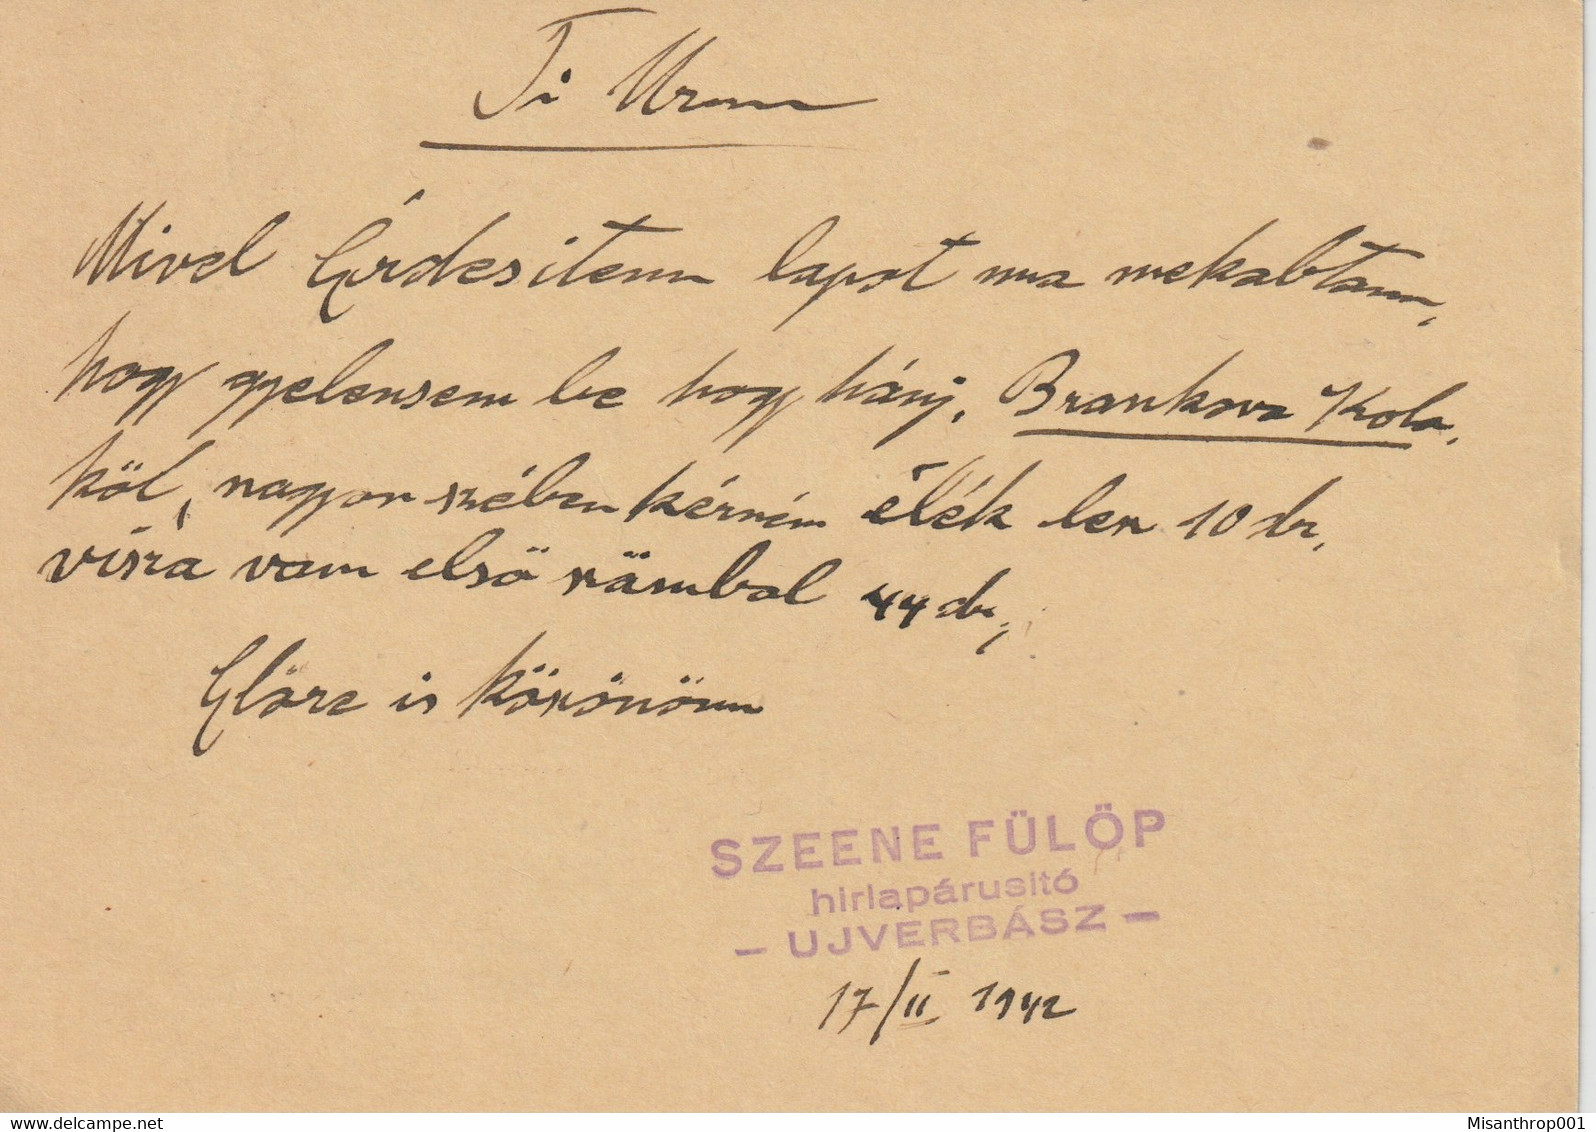 Ti Uram
Mivel Érdesitem lapot ma mekabtam,
hogy gyelensem be hogy hány, Brankova Kola,
köl, nagyon szében kérném élék len 10 dr,
visza vam elsö sämbol 44 dr,
Elöre is köszönöm
SZEENE FÜLÖP
hirlapárusitó
- UJVERBÁSZ -
17/II 1942
Misanthrop001
delcampe.net